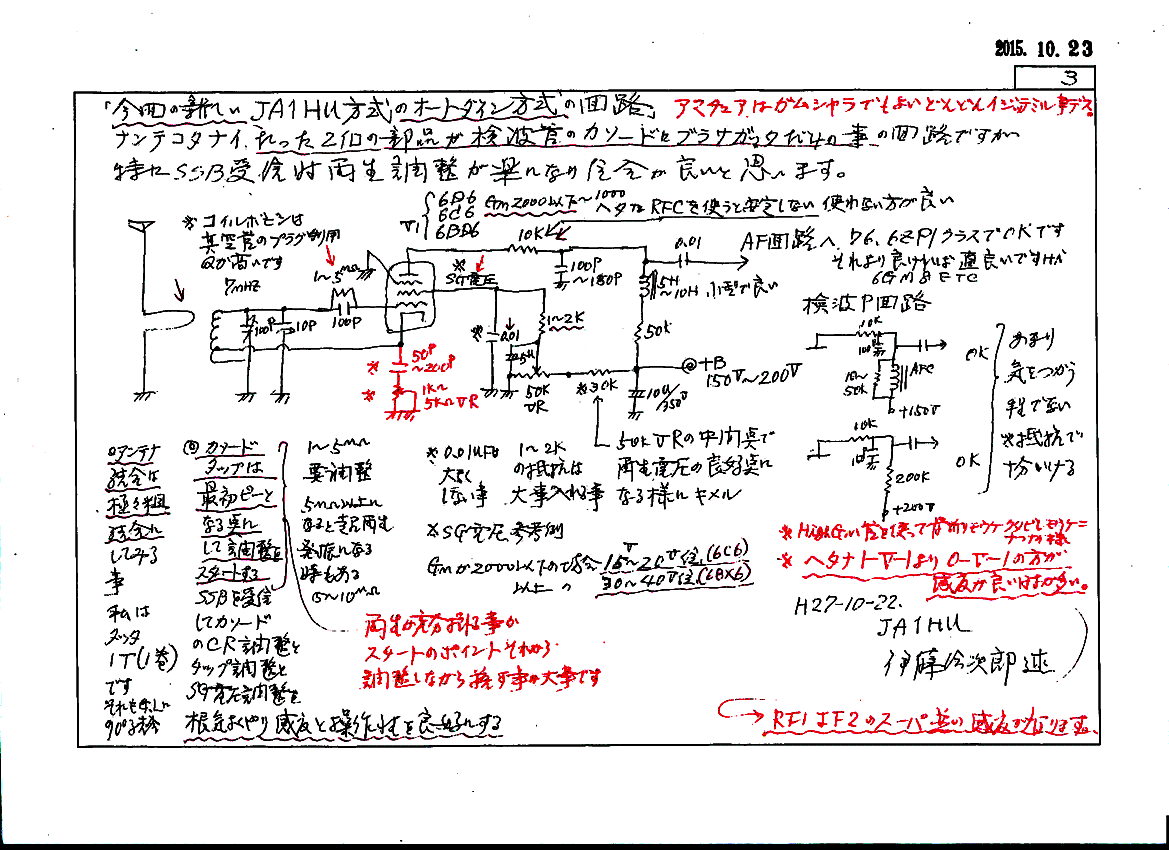 2015. 10. 23
3
「今回の新しい JA1HU方式のオートダイン方式の回路」 アマチュアはガムシャラでもよいどんどんイジッテミル事デス。
ナンテコタナイ、たった2個の部品が検波管のカソードにブラサガッタだけの事の回路ですが
特にSSB受信時再生調整が楽になり具合が良いと思います。
※コイルボビンは
真空管のプラグ利用
Qが高いです
7MHz
1〜5MΩ
100P
10P
100P
V1
6D6
6C6
6BD6
Gm2000以下〜1000
ヘタなRFCを使うと安定しない 使わない方が良い
10K
※
SG電圧
100P
〜150P
0.01
AF回路へ、76、6ZP1クラスでOKです
それより良ければ尚良いですが
6GM8 ETC
5H
〜10H 小型で良い
50K
1〜2K
※
0.01
50K
VR
※30K
10μ/
350V
+B
150V〜200V
※ 50P
〜200P
※ 1K〜
5KΩVR
検波P回路
10K
100P
10〜
50K
AFC
+150V
OK
10K
100P
200K
+200V
OK
あまり
気をつかう
程で無い
※抵抗で
十分いける
◎アンテナ
結合は
極々粗
結合に
してみる
事
私は
1T(1巻)
です
◎カソード
タップは
最初ピーと
なる点に
して調整を
スタートする
SSBを受信
してカソード
のCR調整と
タップ調整と
SG電圧調整を
根気よくやり感度と操作性を良好にする
1〜5MΩ
要調整
5MΩ以上に
なると
時もある
5〜10MΩ
※0.01μFは
大きく
しない事
1〜2K
の抵抗は
大事入れる事
50KVRの中間点で
再生電圧の良好点に
なる様にキメル
※SG電圧参考例
Gmが2000以下の
以上の
15V〜20V位(6C6)
30〜40V位(6BX6)
再生が充分起る事が
スタートのポイントそれから
調整しながら探す事が大事です
※ヘタナ1-V-1より0-V-1の方が
感度が良いはずが多い。
H27-10-22.
JA1HU
RF1 IF2のスーパ並の感度が有ります。